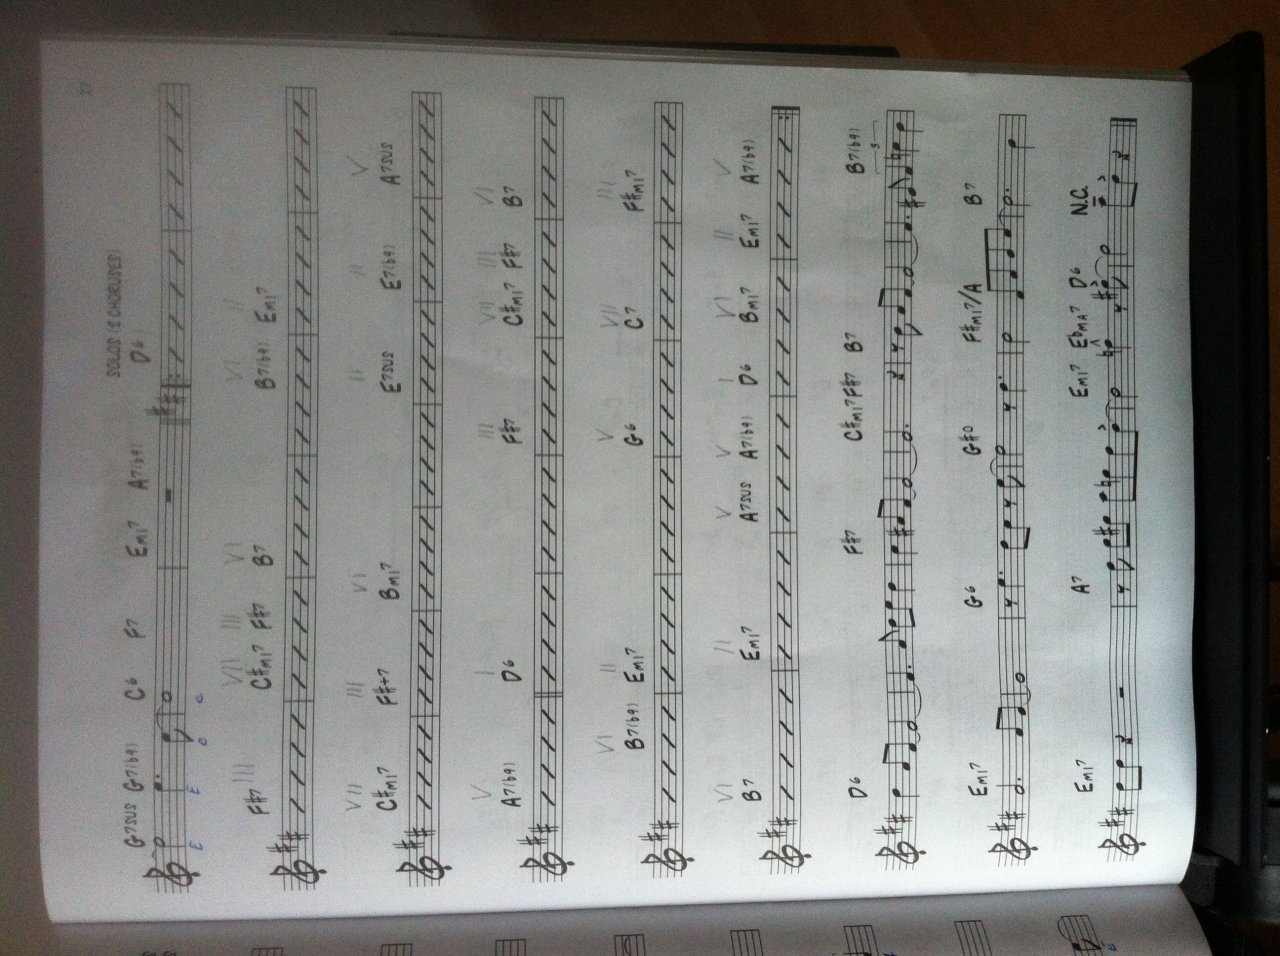 37
SOLOS (2 CHORUSES)
G7SUS G7(b9) C6 F7 Emi7 A7(b9) D6
E E C C
VII III VI VI II
F#7 III C#mi7 F#7 B7 B7(b9) Emi7
VII III VI II II V
C#mi7 F#+7 Bmi7 E7SUS E7(b9) A7SUS
V I III VII III VI
A7(b9) D6 F#7 C#mi7 F#7 B7
VI II V VII III
B7(b9) Emi7 G6 C7 F#mi7
VI II V V I VI II V
B7 Emi7 A7SUS A7(b9) D6 Bmi7 Emi7 A7(b9)
D6 F#7 C#mi7 F#7 B7 B7(b9)
3
Emi7 G6 G#o F#mi7/A B7
Emi7 A7 Emi7 EbMA7 D6 N.C.